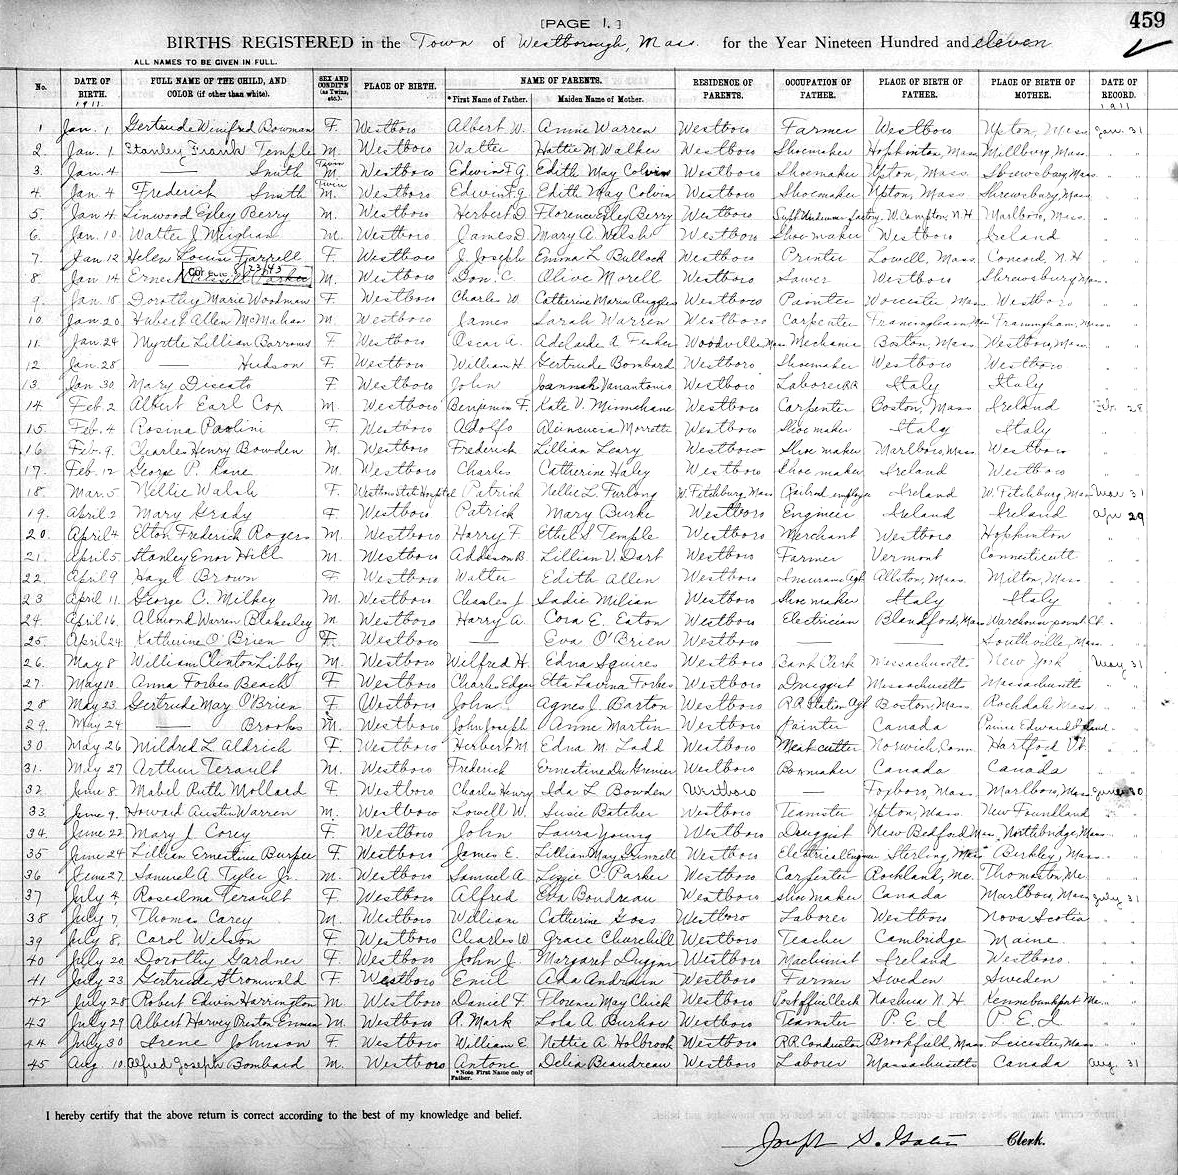 [PAGE 1.]
459
BIRTHS REGISTERED in the Town of Westborough, Mass. for the Year Nineteen Hundred and eleven
ALL NAMES TO BE GIVEN IN FULL.
No. DATE OF BIRTH. 1911. FULL NAME OF THE CHILD, AND COLOR (if other than white). SEX AND CONDIT'N (as Twins, etc.). PLACE OF BIRTH. NAME OF PARENTS. *First Name of Father. Maiden Name of Mother. RESIDENCE OF PARENTS. OCCUPATION OF FATHER. PLACE OF BIRTH OF FATHER. PLACE OF BIRTH OF MOTHER. DATE OF RECORD. 1911
1 Jan. 1 Gertrude Winifred Bowman F. Westboro Albert W. Annie Warren Westboro Farmer Westboro Upton, Mass Jan. 31
2. Jan. 1 Stanley Frank Temple M. Westboro Walter Hattie M. Walker Westboro Shoemaker Hopkinton, Mass Millbury Mass. " "
3. Jan. 4 — Smith Twin M. Westboro Edwin F. G. Edith May Colvin Westboro Shoemaker Upton, Mass. Shrewsbury Mass " "
4. Jan. 4 Frederick Smith Twin M. Westboro Edwin F. G. Edith May Colvin Westboro Shoemaker Upton, Mass. Shrewsbury, Mass " "
5. Jan. 4 Linwood Epley Berry M. Westboro Herbert D. Florence Epley Berry Westboro W. Campton, N.H Marlboro, Mass. " "
6. Jan. 10 Walter J. Meighan M. Westboro James D. Mary A. Welsh Westboro Shoe maker Westboro Ireland " "
7. Jan 12 Helen Louise Farrell F. Westboro J. Joseph Emma L. Bullock Westboro Printer Lowell, Mass. Concord, N.H " "
8. Jan 14 Ernest Russell Parker M. Westboro Don C. Olive Morell Westboro Sawer Westboro Shrewsbury Mass. " "
9. Jan. 18 Dorothy Marie Woodman F. Westboro Charles W. Catherine Maria Ruggles Westboro Painter Worcester Mass Westboro " "
10. Jan 20 Hubert Allen McMahan M. Westboro James Sarah Warren Westboro Carpenter Framingham Mass Framingham, Mass " "
11. Jan. 24 Myrtle Lillian Burrows F. Westboro Oscar A. Adelaide A. Fisher Woodville Mass Mechanic Boston, Mass Westboro, Mass. " "
12 Jan. 28 — Hudson F. Westboro William H. Gertrude Bombard Westboro Shoemaker Westboro Westboro " "
13. Jan. 30 Mary Discato F. Westboro John Joannah Vanantonio Westboro Laborer RR Italy Italy " "
14. Feb. 2 Albert Earl Cox M. Westboro Benjamin F. Kate V. Minnehane Westboro Carpenter Boston, Mass Ireland Feb. 28
15. Feb. 4 Rosina Paolini F. Westboro Adolfo Westboro Shoe maker Italy Italy " "
16 Feb. 9. Charles Henry Bowden M. Westboro Frederick Lillian Leary Westboro Shoe maker Marlboro, Mass. Westboro " "
17. Feb. 12 George P. Kane M. Westboro Charles Catherine Haley Westboro Shoe maker Ireland Westboro " "
18. Mar. 5 Nellie Walsh F. Westboro State Hospital Patrick Nellie L. Furlong W. Fitchburg, Mass Railroad employee Ireland W. Fitchburg, Mass Mar 31
19. April 2 Mary Grady F. Westboro Patrick Mary Burke Westboro Engineer Ireland Ireland Apr 29
20. April 4 Elton Frederick Rogers M. Westboro Harry F. Ethel S. Temple Westboro Merchant Westboro Hopkinton " "
21. April 5 Stanley Enor Hill M. Westboro Addison B. Lillian V. Dart Westboro Farmer Vermont Connecticutt " "
22. April 9 Hazel Brown F. Westboro Walter Edith Allen Westboro Insurance Agt. Allston, Mass. Milton, Mass " "
23. April 11. George C. Milkey M. Westboro Charles J. Sadie Milian Westboro Shoe maker Italy Italy " "
24. April 16. Almond Warren Blakesley M. Westboro Harry A. Cora E. Eaton Westboro Electrician Blandford, Mass Warehouse point Ct. " "
25. April 24. Katherine O'Brien F. Westboro — Eva O'Brien Westboro — — Southville, Mass " "
26. May 8 William Clinton Libby M. Westboro Wilfred H. Edna Squires Westboro Bank Clerk Massachusetts New York May 31
27. May 10. Anna Forbes Beach F. Westboro Charles Edgar Etta Lavina Forbes Westboro Druggist Massachusetts Massachusetts " "
28 May 23. Gertrude May O'Brien F. Westboro John Agnes J. Barton Westboro R.R. Station Agt. Boston, Mass Rochdale Mass. " "
29. May 24 — Brooks M. Westboro John Joseph Anne Martin Westboro Painter Canada Prince Edward Island. " "
30 May 26 Mildred L. Aldrich F. Westboro Herbert M. Edna M. Ladd Westboro Meat cutter Norwich, Conn. Hartford Vt. " "
31. May 27 Arthur Terault M. Westboro Frederick Ernestine Du Grenier Westboro Boxmaker Canada Canada " "
32 June 8. Mabel Ruth Mollard F. Westboro Charles Henry Ida L. Bowden Westboro — Foxboro Mass. Marlboro, Mass June 30
33. June 9. Howard Austin Warren M. Westboro Lowell W. Susie Batcher Westboro Teamster Upton, Mass. New Foundland " "
34. June 22. Mary J. Corey F. Westboro John Laura Young Westboro Druggist New Bedford Mass. Northbridge, Mass " "
35 June 24 Lillian Ernestine Burpee F. Westboro James E. Lillian May Grinnell Westboro Electrical Engineer Sterling, Mass Berkley, Mass. " "
36 June 27. Samuel A. Tyler Jr. M. Westboro Samuel A. Lizzie C. Parker Westboro Carpenter Rockland, Me. Thomaston, Me. " "
37 July 4 Rosealma Terault F. Westboro Alfred Eva Boudreau Westboro Shoe Maker Canada Marlboro, Mass July 31
38 July 7 Thomas Carey M. Westboro William Catherine Goss Westboro Laborer Westboro Nova Scotia " "
39 July 8. Carol Wilson F. Westboro Charles W. Grace Churchill Westboro Teacher Cambridge Maine " "
40 July 20 Dorothy Gardner F. Westboro John J. Margaret Duggan Westboro Machinist Ireland Westboro. " "
41 July 23 Gertrude Stromwald F. Westboro Emil Ada Andrain Westboro Farmer Sweden Sweden " "
42 July 28 Robert Edwin Harrington M Westboro Daniel F. Florence May Chick Westboro Post office Clerk Nashua N.H Kennebunkport Me. " "
43 July 29 Albert Harvey Preston Enman M. Westboro A. Mark Lola A. Burhoe Westboro Teamster P. E. I P. E. I " "
44 July 30 Irene Johnson F. Westboro William E. Nettie A. Holbrook Westboro R.R. Conductor Brookfield, Mass. Leicester, Mass " "
45 Aug. 10 Alfred Joseph Bombard M. Westboro Antone Delia Beaudreau Westboro Laborer Massachusetts Canada Aug. 31
*Note First Name only of Father.
I hereby certify that the above return is correct according to the best of my knowledge and belief.
Joseph S. Gates Clerk.